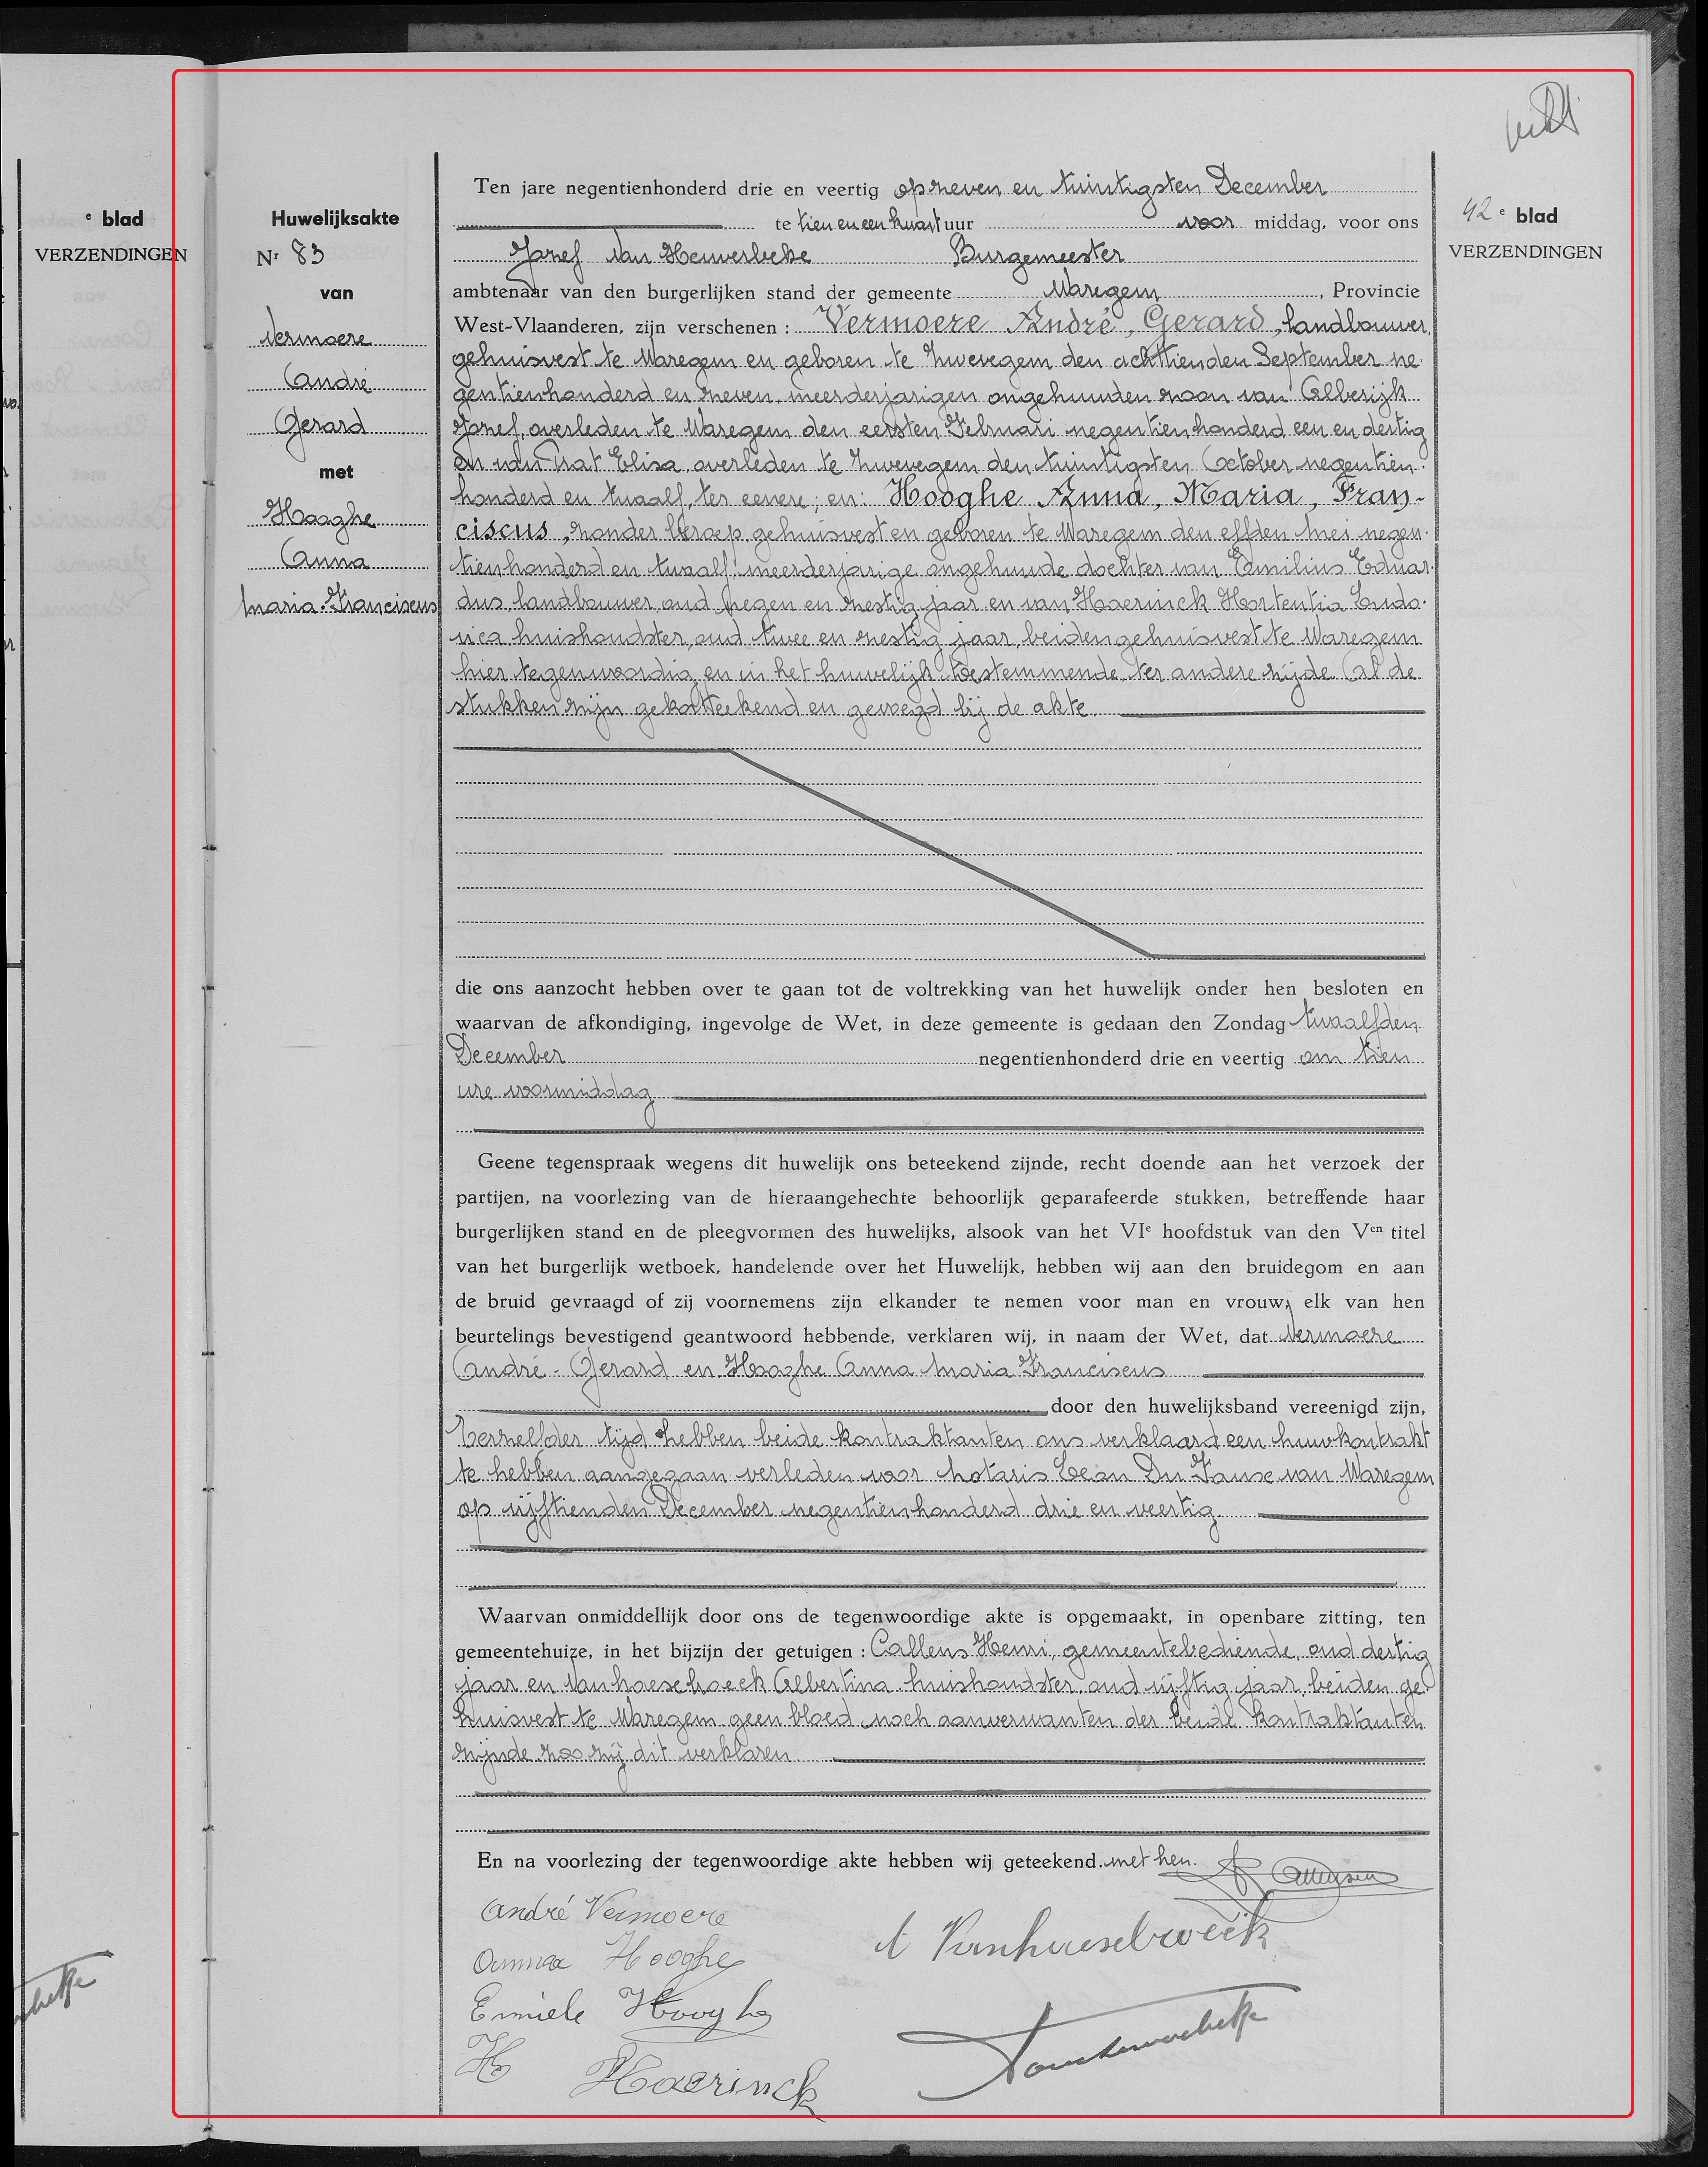 e blad
VERZENDINGEN
Huwelijksakte
Nr 83
van
Vermoere
André
Gerard
met
Hooghe
Anna
Maria-Franciscus
42 e blad
VERZENDINGEN
Ten jare negentienhonderd drie en veertig op zeven en twintigsten December
te tien en een kwart uur voor middag, voor ons
Jozef Van Heuverbeke Burgemeester
ambtenaar van den burgerlijken stand der gemeente Waregem, Provincie
West-Vlaanderen, zijn verschenen : Vermoere André, Gerard, landbouwer,
gehuisvest te Waregem en geboren te Zwevegem den achttienden September ne-
gentienhonderd en zeven, meerderjarigen ongehuwden zoon van Alberijk
Jozef, overleden te Waregem den eersten Februari negentienhonderd een en dertig
en van Prat Elisa, overleden te Zwevegem den twintigsten October negentien-
honderd en twaalf, ter eenere; en: Hooghe Anna, Maria, Fran-
ciscus, zonder beroep, gehuisvest en geboren te Waregem den elfden Mei negen-
tienhonderd en twaalf, meerderjarige ongehuwde dochter van Emilius Eduar-
dus, landbouwer, oud negen en zestig jaar en van Haerinck Hortentia Ludo-
vica, huishoudster, oud twee en zestig jaar, beiden gehuisvest te Waregem
hier tegenwoordig en in het huwelijk toestemmende, ter andere zijde. Al de
stukken zijn gekotteekend en gevoegd bij de akte.
die ons aanzocht hebben over te gaan tot de voltrekking van het huwelijk onder hen besloten en
waarvan de afkondiging, ingevolge de Wet, in deze gemeente is gedaan den Zondag twaalfden
December negentienhonderd drie en veertig om tien
ure voormiddag
Geene tegenspraak wegens dit huwelijk ons beteekend zijnde, recht doende aan het verzoek der
partijen, na voorlezing van de hieraangehechte behoorlijk geparafeerde stukken, betreffende haar
burgerlijken stand en de pleegvormen des huwelijks, alsook van het VIe hoofdstuk van den Ven titel
van het burgerlijk wetboek, handelende over het Huwelijk, hebben wij aan den bruidegom en aan
de bruid gevraagd of zij voornemens zijn elkander te nemen voor man en vrouw, elk van hen
beurtelings bevestigend geantwoord hebbende, verklaren wij, in naam der Wet, dat Vermoere
André-Gerard en Hooghe Anna Maria Franciscus
door den huwelijksband vereenigd zijn,
Terzelfder tijd hebben beide kontraktanten ons verklaard een huwkontrakt
te hebben aangegaan verleden voor Notaris Leon Du Faux van Waregem
op vijftienden December negentienhonderd drie en veertig.
Waarvan onmiddellijk door ons de tegenwoordige akte is opgemaakt, in openbare zitting, ten
gemeentehuize, in het bijzijn der getuigen : Callens Henri, gemeentebediende, oud dertig
jaar en Vanhaesebroeck Albertina, huishoudster, oud vijftig jaar, beiden ge-
huisvest te Waregem geen bloed noch aanverwanten der beide kontraktanten
zijnde zoo zij dit verklaren
En na voorlezing der tegenwoordige akte hebben wij geteekend. met hen.
André Vermoere
Anna Hooghe
A Vanhaesebroeck
Emiele Hooghe
H Haerinck